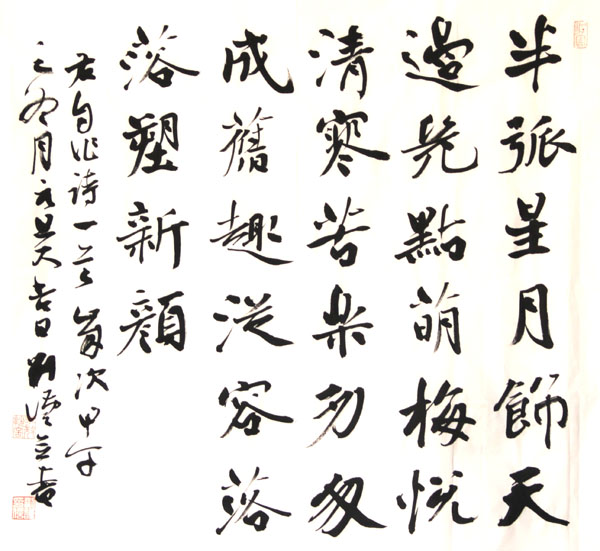 半弧星月飾天
邊幾點萌梅悦
清寒苦樂匆匆
成舊趣從容落
落塑新顏
右自作詩一首歲次甲午
之冬月元旦吉日劉書